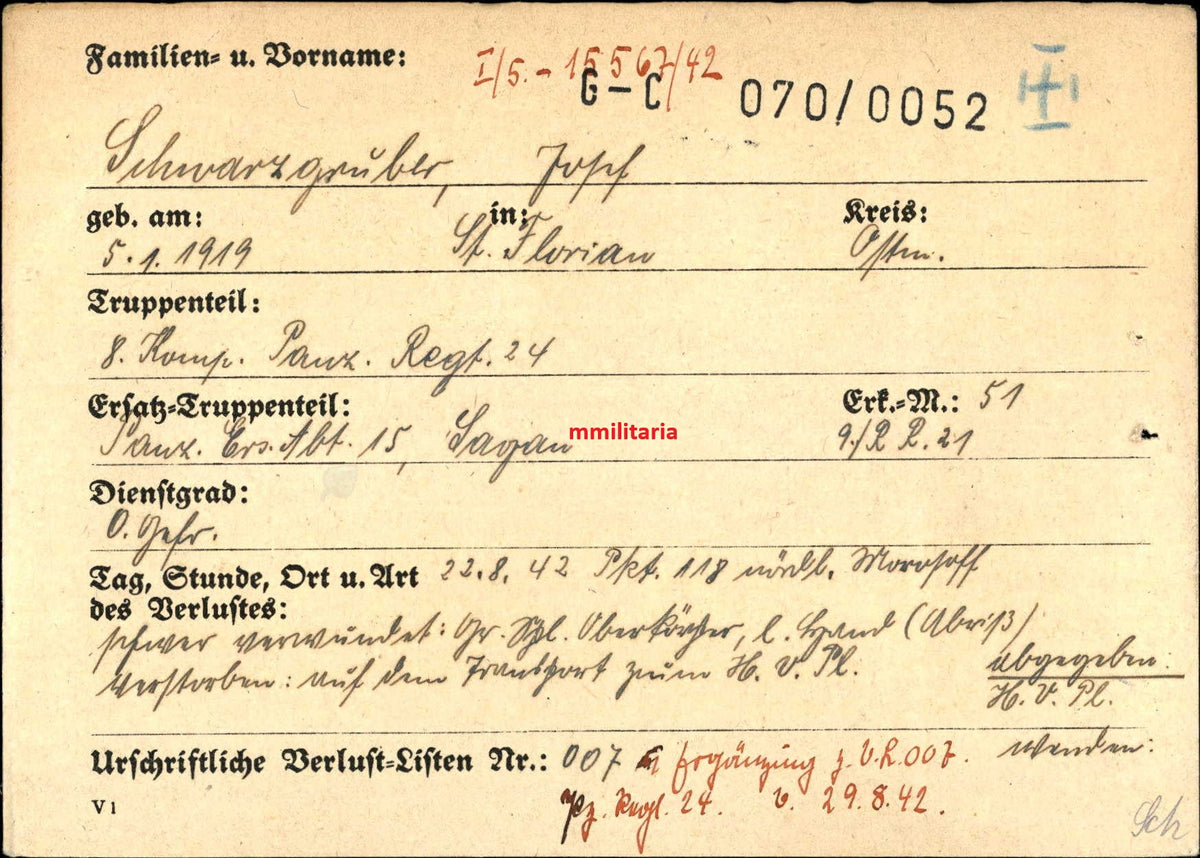 Familien- u. Vorname:
I/5. - 15567/42
G – C 070/0052
Schwarzgruber, Josef
geb. am: in: Kreis:
5.1.1919 St. Florian Ostm.
Truppenteil:
8. Komp. Panz. Regt. 24
Ersatz-Truppenteil: Erk.-M.: 51
Panz. Ers. Abt. 15, Sagan 9./R R. 21
mmilitaria
Dienstgrad:
O. Gefr.
Tag, Stunde, Ort u. Art 22.8.42 Pkt. 118 nördl. Morosoff
des Verlustes:
schwer verwundet: Gr. Spl. Oberkörper, l. Hand (Abriß)
verstorben: auf dem Transport zum H. V. Pl. abgegeben:
H. V. Pl.
Urschriftliche Verlust-Listen Nr.: 007 Ergänzung z. V.L. 007. wenden:
V 1 Pz. Regt. 24. v. 29.8.42.
Sch